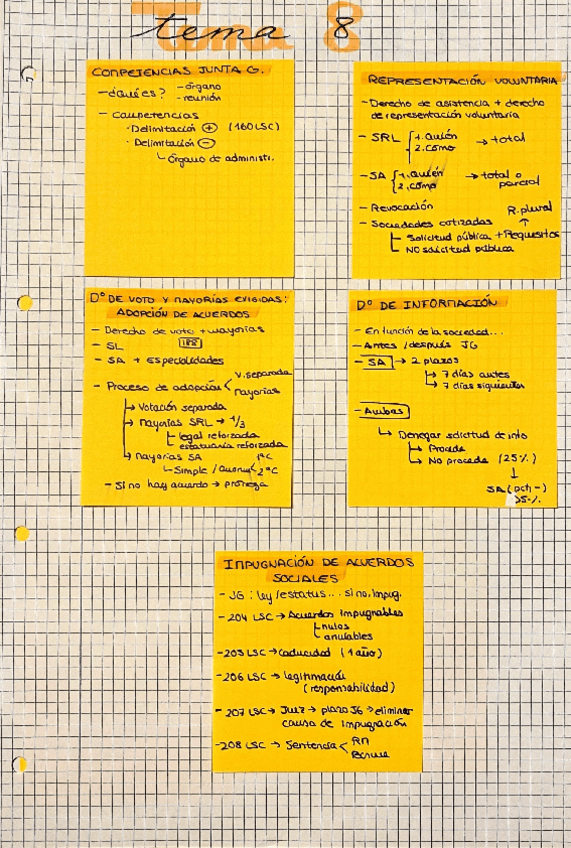 tema 8
COMPETENCIAS JUNTA G.
- ¿Qué es? - órgano
- reunión
- competencias
· Delimitación + (160 LSC)
· Delimitación -
Órgano de administ.
REPRESENTACIÓN VOLUNTARIA
- Derecho de asistencia + derecho
de representación voluntaria
- SRL 1. Quién → total
2. cómo
- SA 1. Quién → total o
2. cómo parcial
- Revocación
- Sociedades cotizadas R. plural
Solicitud pública + Requisitos
NO solicitud pública
Dº DE VOTO Y MAYORÍAS EXIGIDAS:
ADOPCIÓN DE ACUERDOS
- Derecho de voto + mayorías
- SL 188
- SA + Especialidades
- Proceso de adopción < V. separada
mayorías
→ Votación separada
→ Mayorías SRL → 1/3
legal reforzada
estatutaria reforzada
→ Mayorías SA 1ªC
Simple / Quorum < 2ªC
- Si no hay acuerdo → prórroga
Dº DE INFORMACIÓN
- En función de la sociedad...
- Antes / después JG
- SA → 2 plazos
→ 7 días antes
→ 7 días siguientes
- Ambas
→ Denegar solicitud de info
→ Procede
→ No procede (25%)
↓
SA
IMPUGNACIÓN DE ACUERDOS
SOCIALES
- JG: ley/estatus... si no, impug.
- 204 LSC → Acuerdos impugnables
nulos
anulables
- 205 LSC → caducidad (1 año)
- 206 LSC → legitimación
(responsabilidad)
- 207 LSC → Juez → plazo JG → eliminar
causa de impugnación
- 208 LSC → Sentencia < RM
Borme